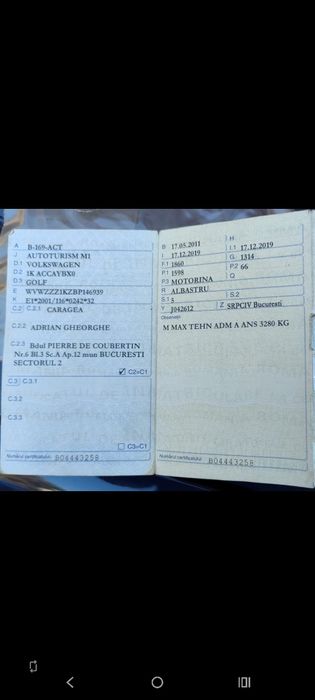 A B-169-ACT
J AUTOTURISM M1
D.1 VOLKSWAGEN
D.2 1K ACCAYBX0
D.3 GOLF
E WVWZZZ1KZBP146939
K E1*2001/116*0242*32
C.2 C.2.1 CARAGEA
C.2.2 ADRIAN GHEORGHE
C.2.3 Bdul PIERRE DE COUBERTIN
Nr.6 Bl.3 Sc.A Ap.12 mun BUCURESTI
SECTORUL 2
C2=C1
C.3 C.3.1
C.3.2
C.3.3
C3=C1
Numărul certificatului B04443258
B 17.05.2011 H
I 17.12.2019 I.1 17.12.2019
F.1 1860 G 1314
P.1 1598 P.2 66
P.3 MOTORINA Q
R ALBASTRU
S.1 5 S.2
Y J042612 Z SRPCIV Bucuresti
Observații
M MAX TEHN ADM A ANS 3280 KG
Numărul certificatului B04443258